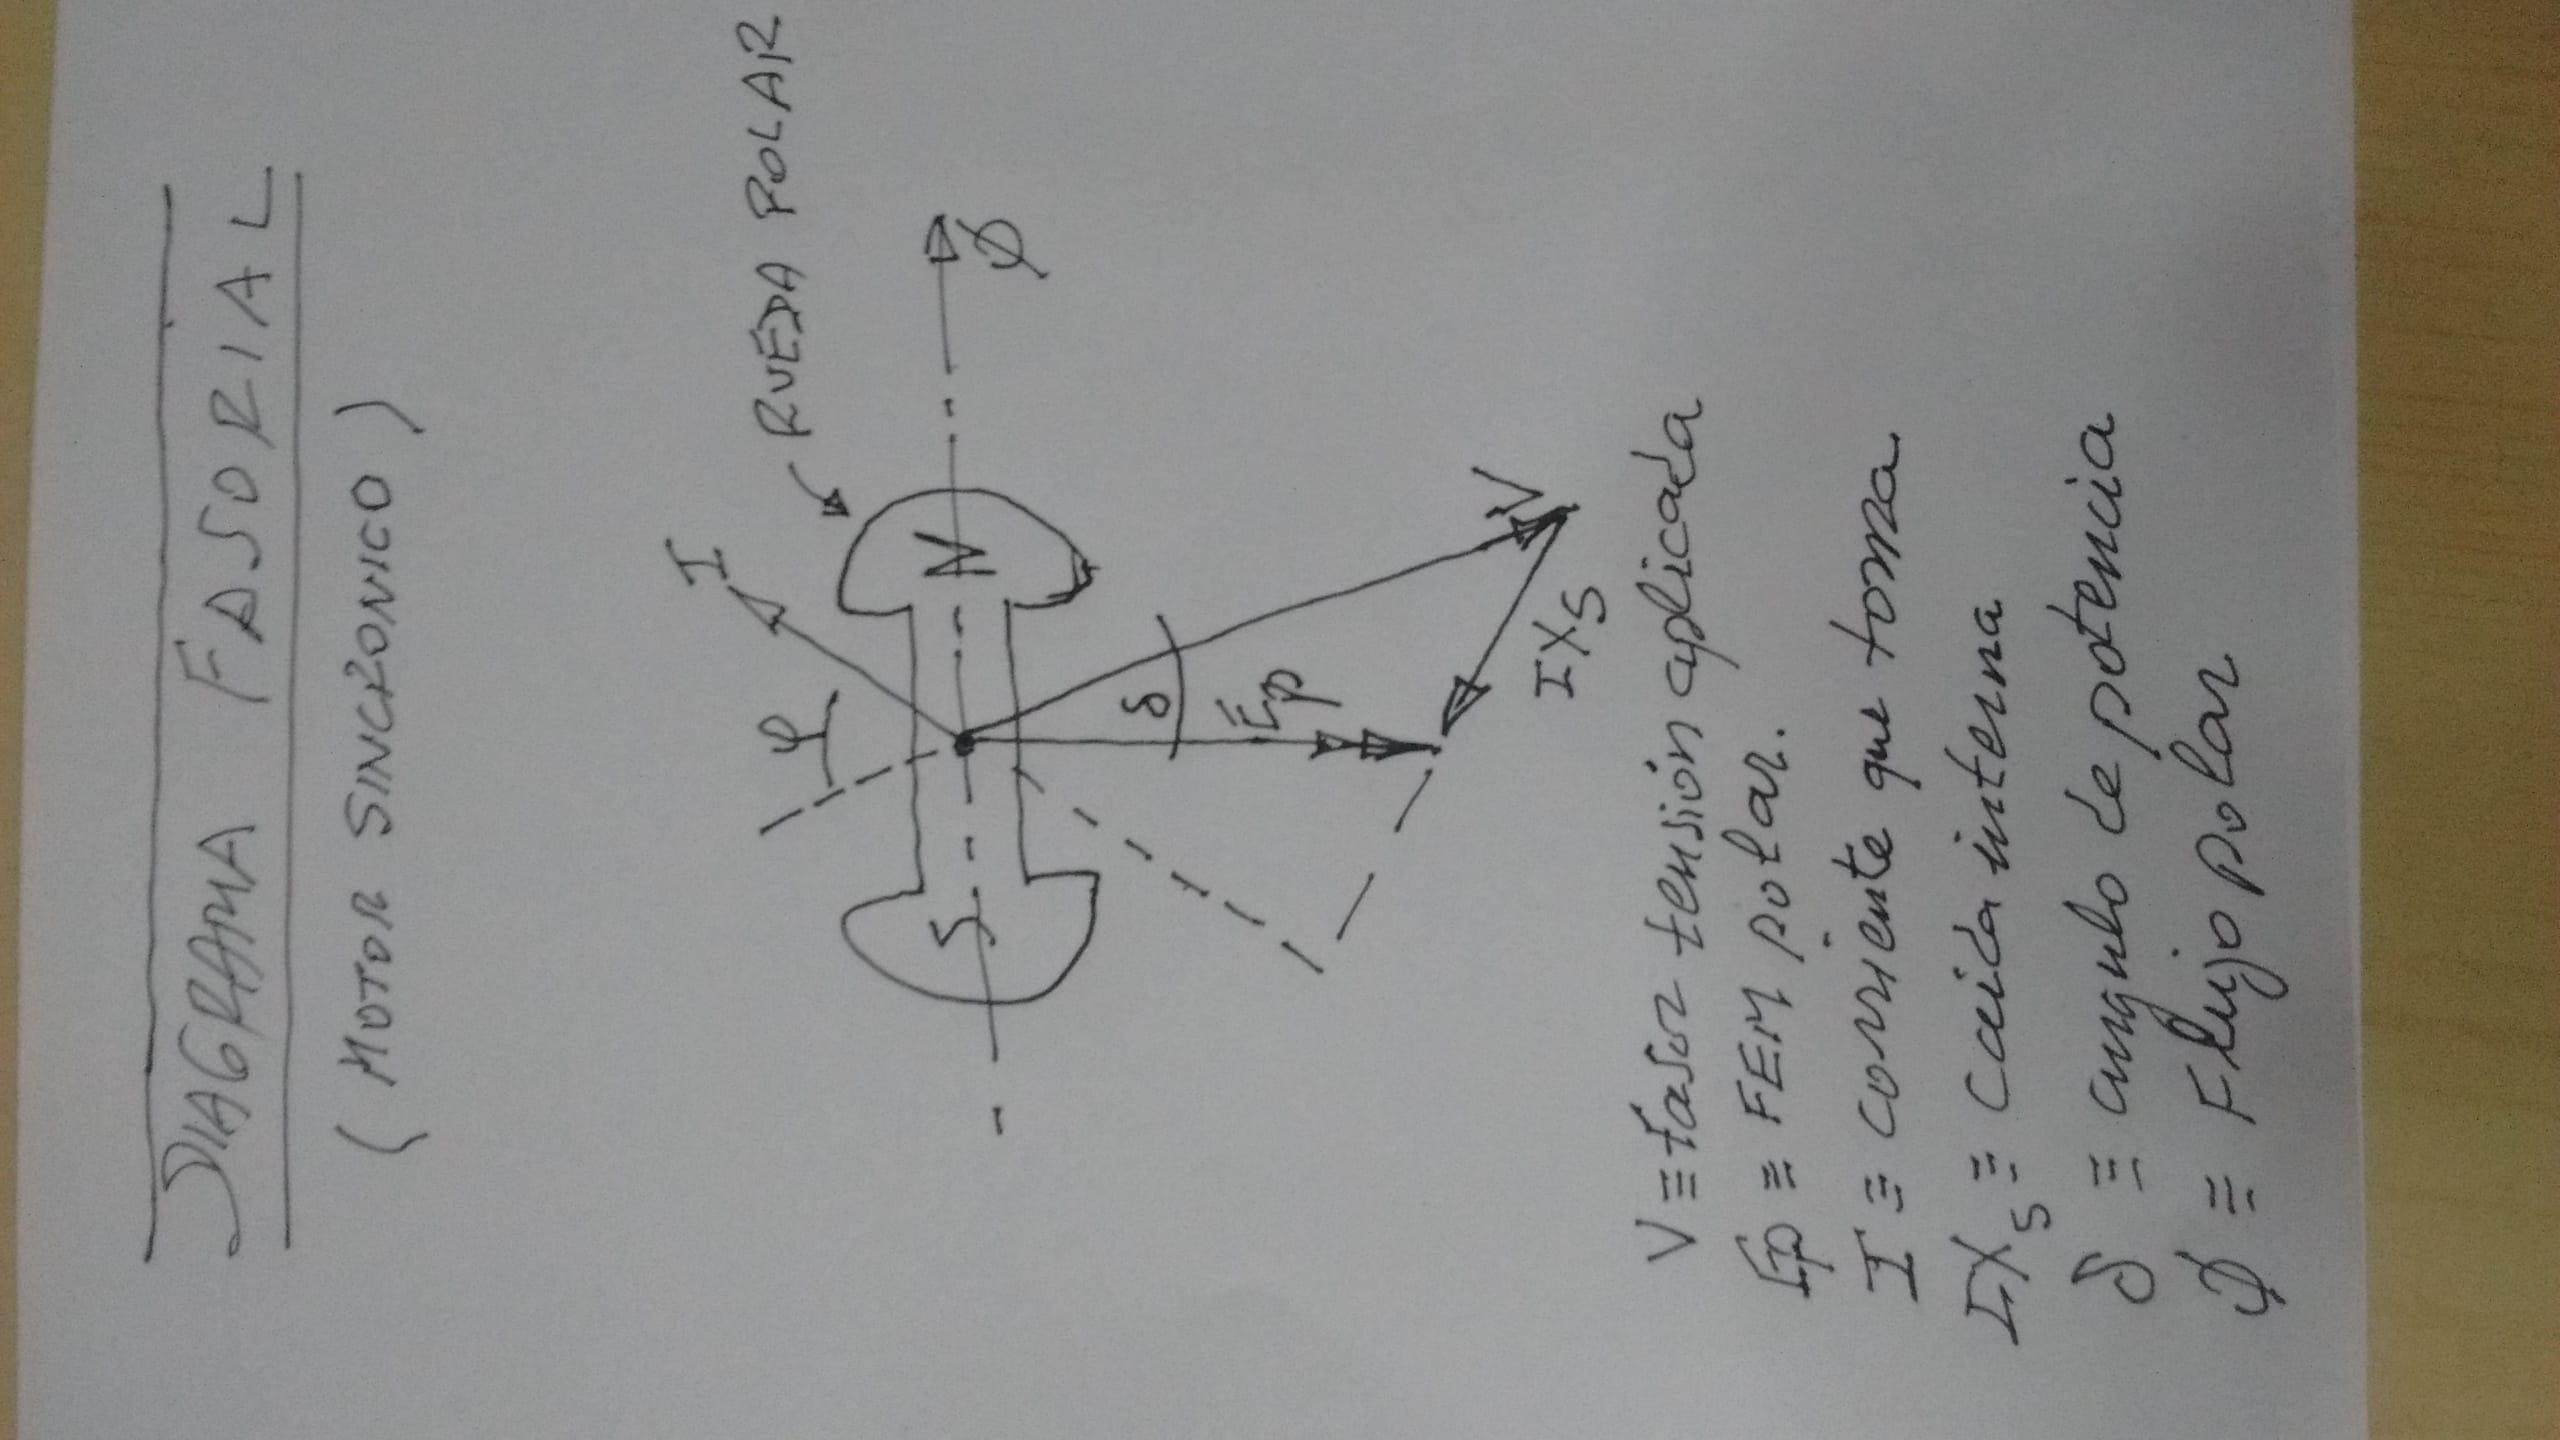 DIAGRAMA FASORIAL
(MOTOR SINCRONICO)
RUEDA POLAR
I
φ
S
N
Ø
δ
Ep
V
IXs
V ≡ fasor tensión aplicada
Ep ≡ FEM polar.
I ≡ corriente que toma
IXs ≡ Caida interna
δ ≡ angulo de potencia
Ø ≡ Flujo polar